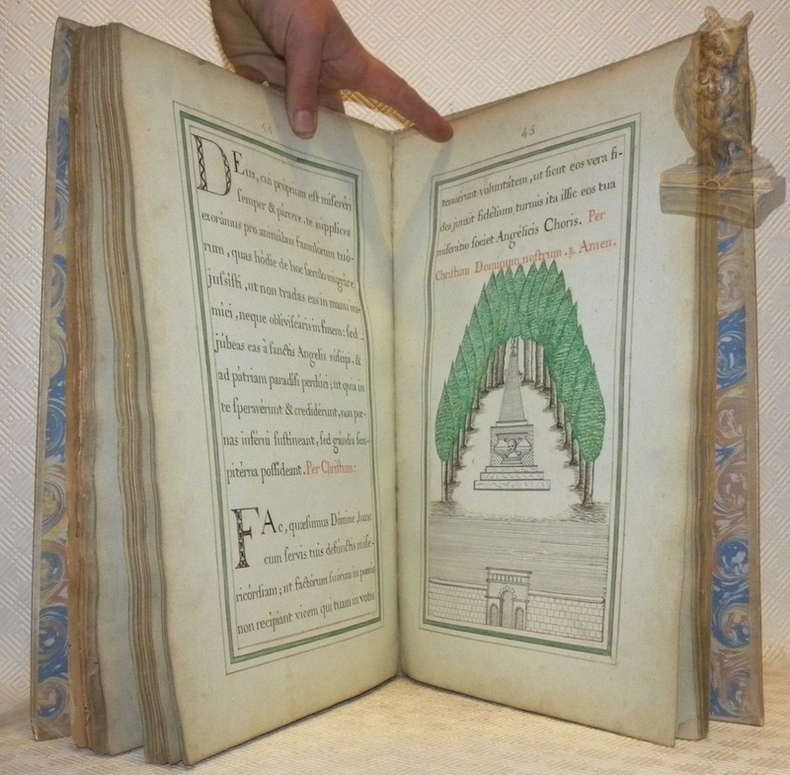 44
DEus, cui proprium est miseréri
semper & parcere, te supplices
exorámus pro animábus famulorum tuó-
rum, quas hódie de hoc sæculo migráre
jussisti, ut non tradas eas in manu ini-
mici, neque obliviscáris in finem: sed
júbeas eas à sanctis Angelis súscipi, &
ad pátriam paradisi perdúci; ut quia in
te speravérunt & credidérunt, non pœ-
nas inférni sustineant, sed gáudia sem-
pitérna possideant. Per Christum:
FAc, quæsumus Dómine, hanc
cum servis tuis defúnctis mise-
ricórdiam; ut factórum suorum in pœnis
non recipiant vicem qui tuam in votis
45
tenuérunt voluntátem, ut sicut eos vera fi-
des junxit fidélium turmis ita illic eos tua
miseratio societ Angélicis Choris. Per
Christum Dominum nostrum. ℟. Amen.